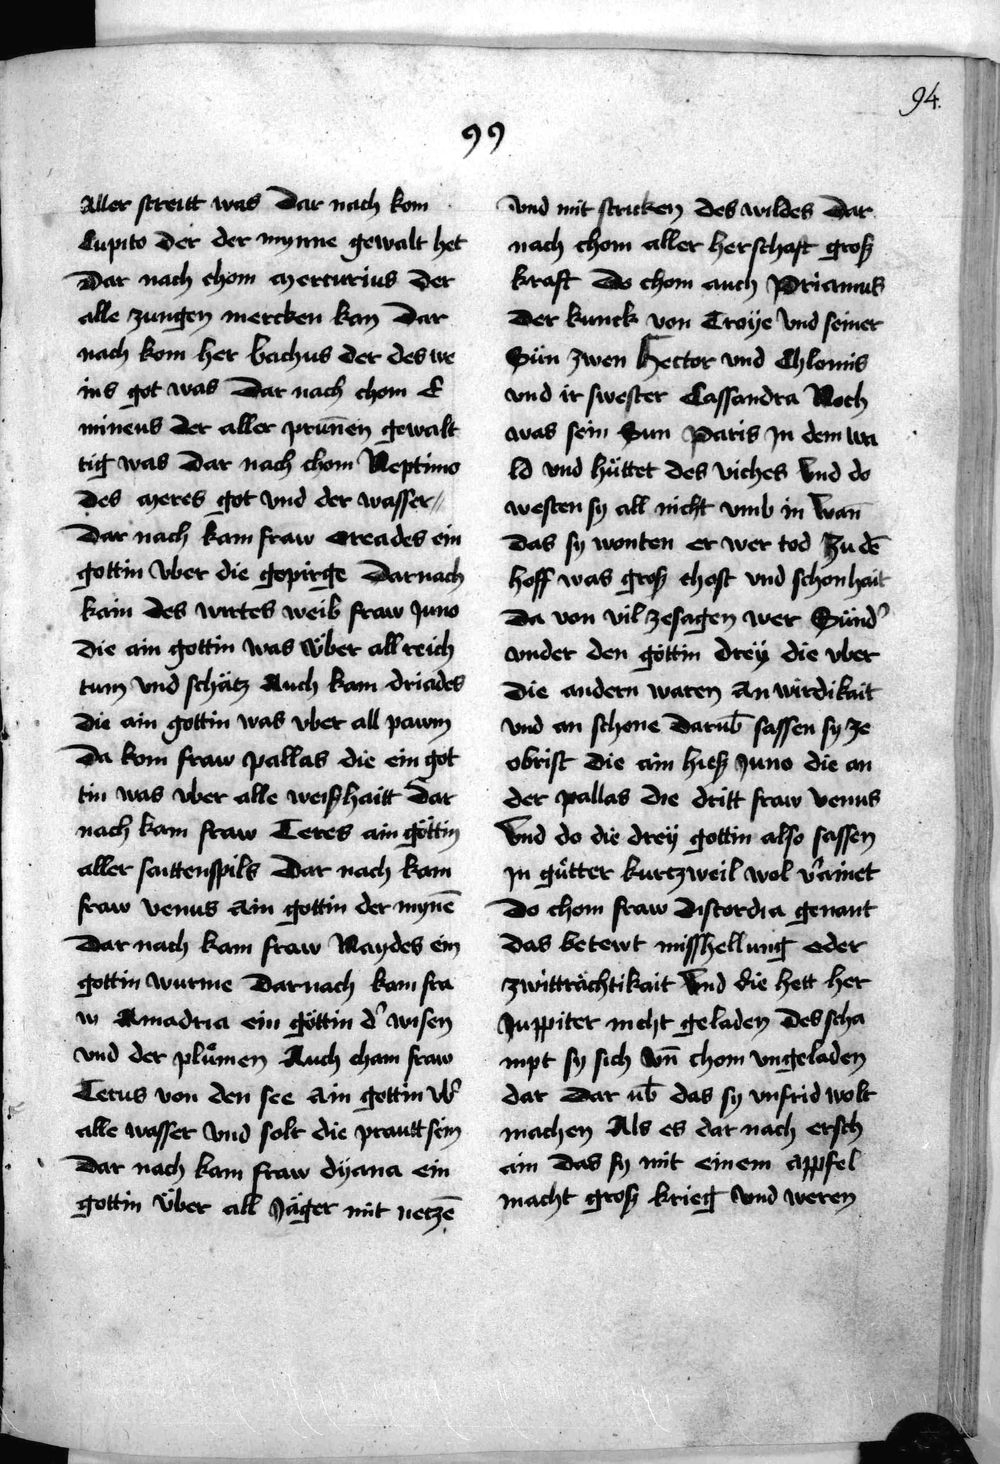 94.
99
Aller streitt was Dar nach kom
Cupito der der mynne gewalt het
Dar nach chom Mercurius der
alle zungen mercken kan Dar
nach kom her bachus der des we
ins got was Dar nach chom E
mineus der aller prunēn gewalt
tig was Dar nach chom Neptimo
des meres got vnd der wasser //
Dar nach kam fraw Oreades ein
gottin vber die gepirge Darnach
kam des wirtes weib fraw Juno
die ain gottin was v̈ber all reich
tum vnd schätz Auch kam driades
die ain gottin was vber all pawm
Da kom fraw pallas die ein got
tin was vber alle weißhaitt Dar
nach kam fraw Ceres ain göttin
aller saittenspils Dar nach kam
fraw venus Ain gottin der mynē
Dar nach kam fraw Naydes ein
gottin wurme Darnach kam fra
w Amadria ein göttin d' wisen
vnd der plůmen Auch cham fraw
Tetus von den see Ain gottin vb'
alle wasser vnd solt die prautt sein
Dar nach kam fraw dyana ein
gottin v̈ber all Jäger mit netzē
vnd mit stricken des wildes Dar
nach chom aller herschaft groß
kraft Do chom auch Priamus
der kunck von Troÿe vnd seiner
Sün zwen Hector vnd Chlomis
vnd ir swester Cassandra Noch
was sein Sun Paris Jn dem wa
ld vnd hüttet des viches Vnd do
westen sy all nicht vmb in Wan̄
Das sy wonten er wer tod Zu dē
hoff was groß chost vnd schonhait
Da von vil zesagen wer Sünd'
vnder den göttin dreÿ die vber
die andern waren An wirdikait
vnd an schone Darub̄ sassen sy ze
obrist Die ain hieß Juno die an
der pallas die dritt fraw venus
Vnd do die dreÿ gottin also sassen
Jn gůtter kurtzweil wol v'ainet
Do chom fraw Discordia genant
Das betewt misshellung oder
zwitträchtikait Vnd die hett her
Juppiter nicht geladen Des scha
mpt sy sich vn̄ chom vngeladen
dar Dar ub̄ das sy vnfrid wolt
machen Als es dar nach ersch
ain Das sy mit einem appfel
macht groß krieg vnd weren